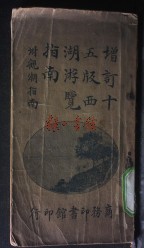 增訂十
五版西
湖游覽
指南
附觀潮指南
商務印書館印行